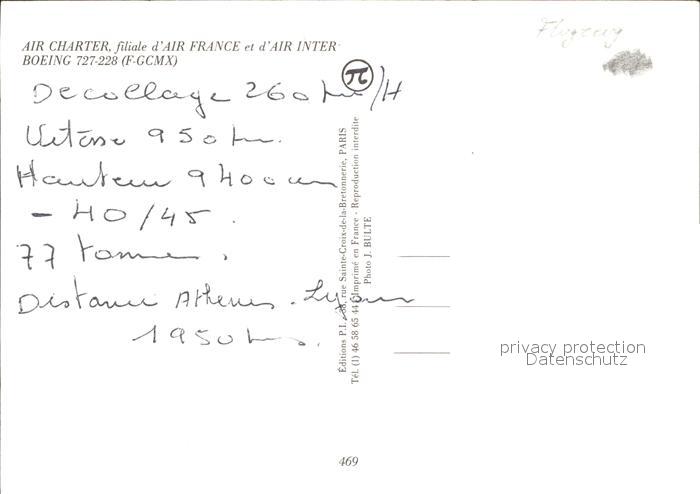 AIR CHARTER, filiale d'AIR FRANCE et d'AIR INTER
BOEING 727-228 (F-GCMX)
Flugzeug
π
Decollage 260 km/H
Vitesse 950 km.
Hauteur 9400 m
- 40/45.
77 tonnes.
Distance Athenes - Lyon
1950 kms.
Éditions P.I., 38, rue Sainte-Croix-de-la-Bretonnerie, PARIS
Tél. (1) 46 58 65 44 Imprimé en France - Reproduction interdite
Photo J. BULTE
privacy protection
Datenschutz
469